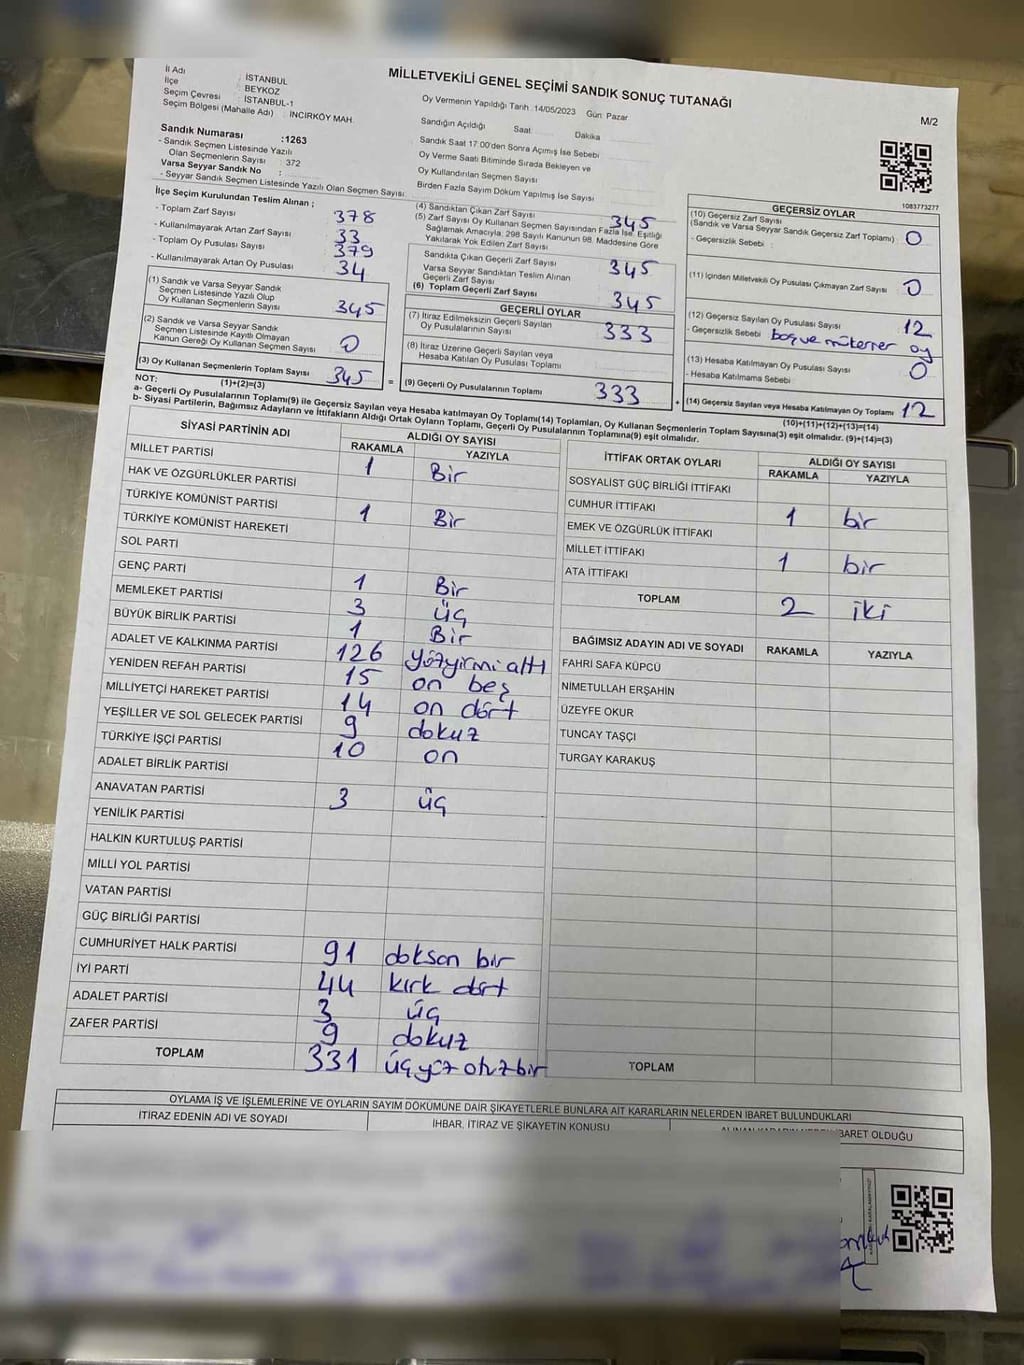 MİLLETVEKİLİ GENEL SEÇİMİ SANDIK SONUÇ TUTANAĞI
M/2
İl Adı : İSTANBUL
İlçe : BEYKOZ
Seçim Çevresi : İSTANBUL-1
Seçim Bölgesi (Mahalle Adı) : İNCİRKÖY MAH.
Sandık Numarası :1263
- Sandık Seçmen Listesinde Yazılı
Olan Seçmenlerin Sayısı : 372
Varsa Seyyar Sandık No :
- Seyyar Sandık Seçmen Listesinde Yazılı Olan Seçmen Sayısı
Oy Vermenin Yapıldığı Tarih :14/05/2023 Gün: Pazar
Sandığın Açıldığı Saat Dakika
Sandık Saat 17:00'den Sonra Açımış İse Sebebi
Oy Verme Saati Bitiminde Sırada Bekleyen ve
Oy Kullandırılan Seçmen Sayısı
Birden Fazla Sayım Döküm Yapılmış İse Sayısı
1083773277
İlçe Seçim Kurulundan Teslim Alınan ;
- Toplam Zarf Sayısı 378
- Kullanılmayarak Artan Zarf Sayısı 33
- Toplam Oy Pusulası Sayısı 379
- Kullanılmayarak Artan Oy Pusulası 34
(1) Sandık ve Varsa Seyyar Sandık
Seçmen Listesinde Yazılı Olup
Oy Kullanan Seçmenlerin Sayısı 345
(2) Sandık ve Varsa Seyyar Sandık
Seçmen Listesinde Kayıtlı Olmayan
Kanun Gereği Oy Kullanan Seçmen Sayısı 0
(3) Oy Kullanan Seçmenlerin Toplam Sayısı 345
(1)+(2)=(3)
(4) Sandıktan Çıkan Zarf Sayısı 345
(5) Zarf Sayısı Oy Kullanan Seçmen Sayısından Fazla İse, Eşitliği
Sağlamak Amacıyla, 298 Sayılı Kanunun 98. Maddesine Göre
Yakılarak Yok Edilen Zarf Sayısı
Sandıkta Çıkan Geçerli Zarf Sayısı 345
Varsa Seyyar Sandıktan Teslim Alınan
Geçerli Zarf Sayısı
(6) Toplam Geçerli Zarf Sayısı 345
GEÇERLİ OYLAR
(7) İtiraz Edilmeksizin Geçerli Sayılan
Oy Pusulalarının Sayısı 333
(8) İtiraz Üzerine Geçerli Sayılan veya
Hesaba Katılan Oy Pusulası Toplamı
= (9) Geçerli Oy Pusulalarının Toplamı 333 +
GEÇERSİZ OYLAR
(10) Geçersiz Zarf Sayısı
(Sandık ve Varsa Seyyar Sandık Geçersiz Zarf Toplamı) 0
- Geçersizlik Sebebi :
(11) İçinden Milletvekili Oy Pusulası Çıkmayan Zarf Sayısı 0
(12) Geçersiz Sayılan Oy Pusulası Sayısı 12
- Geçersizlik Sebebi boş ve mükerrer oy
(13) Hesaba Katılmayan Oy Pusulası Sayısı 0
- Hesaba Katılmama Sebebi
(14) Geçersiz Sayılan veya Hesaba Katılmayan Oy Toplamı 12
(10)+(11)+(12)+(13)=(14)
NOT:
a- Geçerli Oy Pusulalarının Toplamı(9) ile Geçersiz Sayılan veya Hesaba katılmayan Oy Toplamı(14) Toplamları, Oy Kullanan Seçmenlerin Toplam Sayısına(3) eşit olmalıdır. (9)+(14)=(3)
b- Siyasi Partilerin, Bağımsız Adayların ve İttifakların Aldığı Ortak Oyların Toplamı, Geçerli Oy Pusulalarının Toplamına(9) eşit olmalıdır.
SİYASİ PARTİNİN ADI ALDIĞI OY SAYISI
RAKAMLA YAZIYLA
MİLLET PARTİSİ 1 Bir
HAK VE ÖZGÜRLÜKLER PARTİSİ
TÜRKİYE KOMÜNİST PARTİSİ 1 Bir
TÜRKİYE KOMÜNİST HAREKETİ
SOL PARTİ
GENÇ PARTİ 1 Bir
MEMLEKET PARTİSİ 3 üç
BÜYÜK BİRLİK PARTİSİ 1 Bir
ADALET VE KALKINMA PARTİSİ 126 yüzyirmialtı
YENİDEN REFAH PARTİSİ 15 on beş
MİLLİYETÇİ HAREKET PARTİSİ 14 on dört
YEŞİLLER VE SOL GELECEK PARTİSİ 9 dokuz
TÜRKİYE İŞÇİ PARTİSİ 10 on
ADALET BİRLİK PARTİSİ
ANAVATAN PARTİSİ 3 üç
YENİLİK PARTİSİ
HALKIN KURTULUŞ PARTİSİ
MİLLİ YOL PARTİSİ
VATAN PARTİSİ
GÜÇ BİRLİĞİ PARTİSİ
CUMHURİYET HALK PARTİSİ 91 doksan bir
İYİ PARTİ 44 kırk dört
ADALET PARTİSİ 3 üç
ZAFER PARTİSİ 9 dokuz
TOPLAM 331 üçyüz otuzbir
İTTİFAK ORTAK OYLARI ALDIĞI OY SAYISI
RAKAMLA YAZIYLA
SOSYALİST GÜÇ BİRLİĞİ İTTİFAKI
CUMHUR İTTİFAKI 1 bir
EMEK VE ÖZGÜRLÜK İTTİFAKI
MİLLET İTTİFAKI 1 bir
ATA İTTİFAKI
TOPLAM 2 iki
BAĞIMSIZ ADAYIN ADI VE SOYADI RAKAMLA YAZIYLA
FAHRİ SAFA KÜPCÜ
NİMETULLAH ERŞAHİN
ÜZEYFE OKUR
TUNCAY TAŞÇI
TURGAY KARAKUŞ
TOPLAM
OYLAMA İŞ VE İŞLEMLERİNE VE OYLARIN SAYIM DÖKÜMÜNE DAİR ŞİKAYETLERLE BUNLARA AİT KARARLARIN NELERDEN İBARET BULUNDUKLARI
İTİRAZ EDENİN ADI VE SOYADI İHBAR, İTİRAZ VE ŞİKAYETİN KONUSU ALINAN KARARIN NEDEN İBARET OLDUĞU